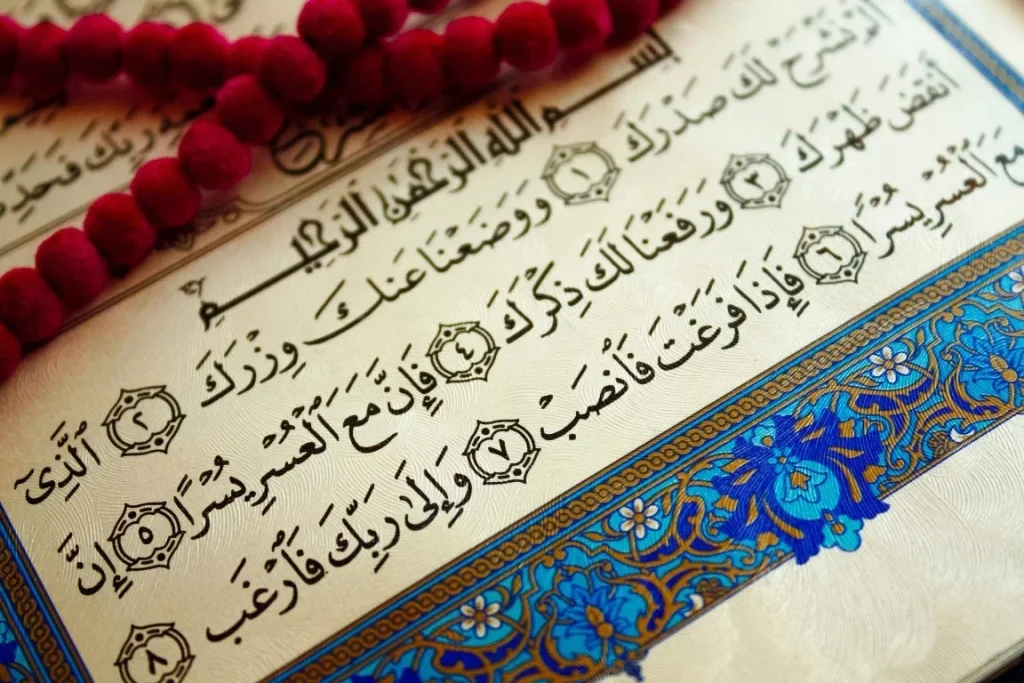 رَبِّكَ
بِسْمِ اللَّهِ الرَّحْمَٰنِ الرَّحِيمِ
أَلَمْ نَشْرَحْ لَكَ صَدْرَكَ ١ وَوَضَعْنَا عَنكَ وِزْرَكَ ٢ ٱلَّذِىٓ
أَنقَضَ ظَهْرَكَ ٣ وَرَفَعْنَا لَكَ ذِكْرَكَ ٤ فَإِنَّ مَعَ ٱلْعُسْرِ يُسْرًا ٥ إِنَّ
مَعَ ٱلْعُسْرِ يُسْرًا ٦ فَإِذَا فَرَغْتَ فَٱنصَبْ ٧ وَإِلَىٰ رَبِّكَ فَٱرْغَب ٨